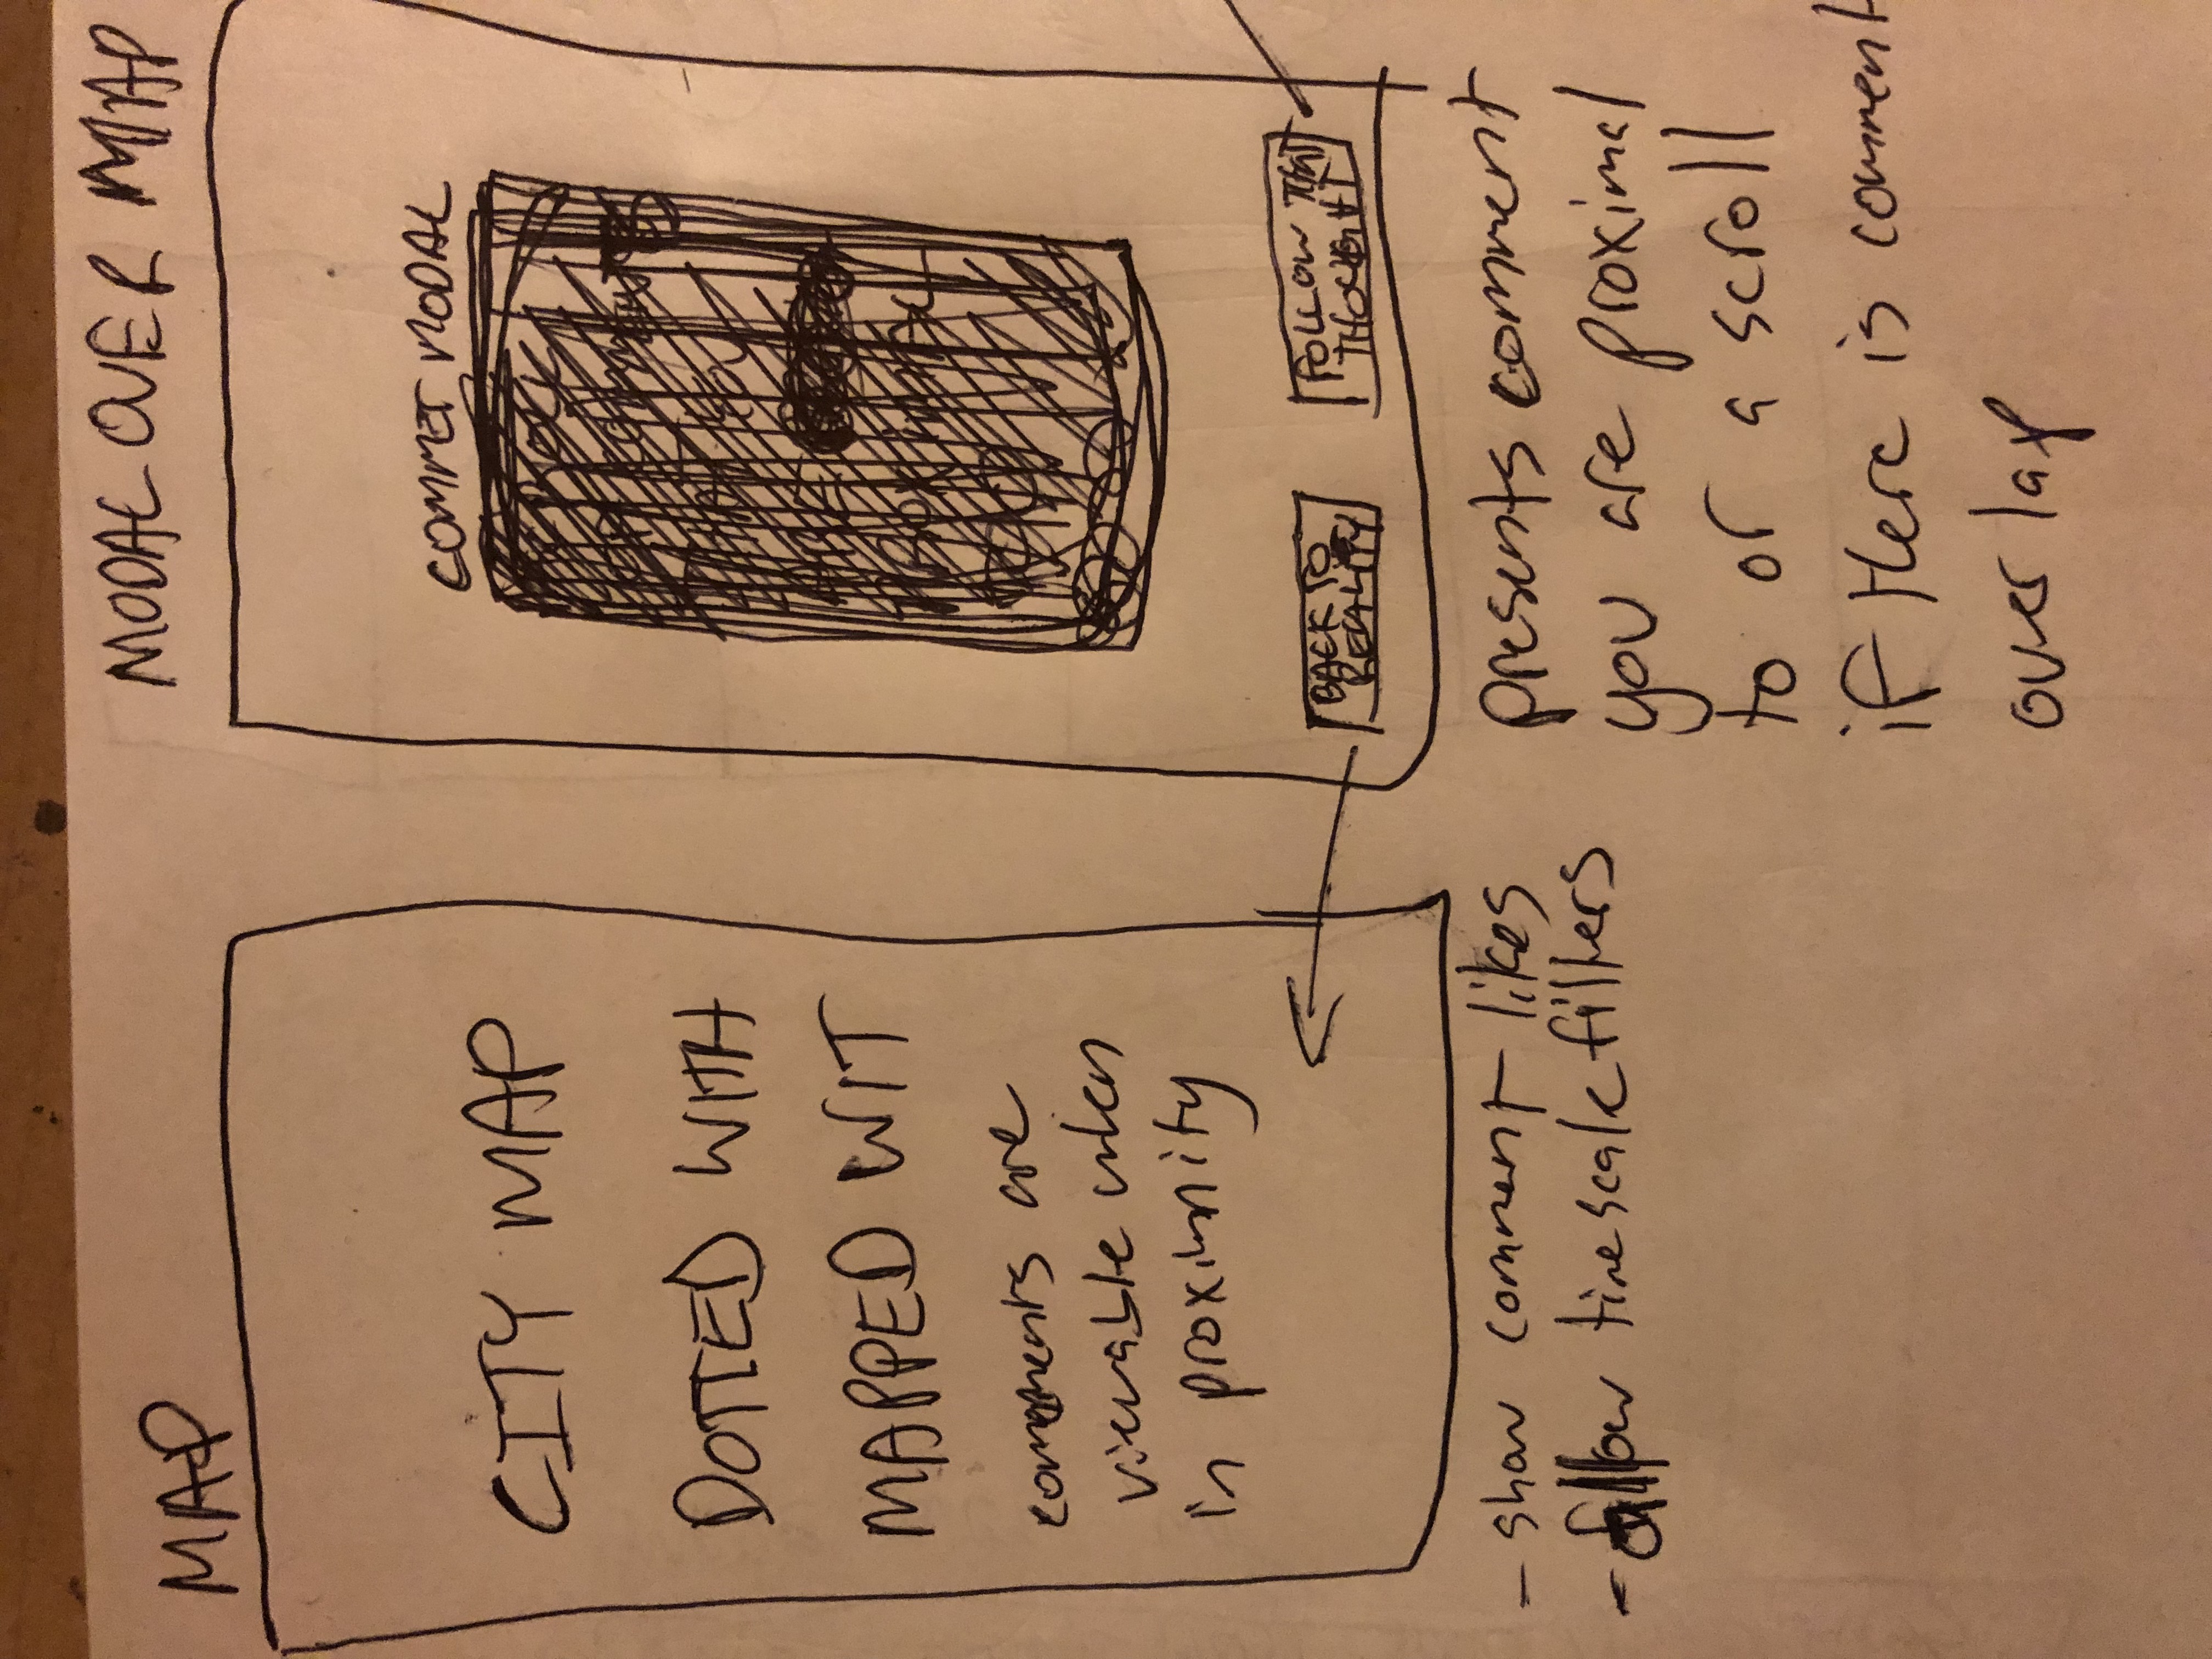 MAP
CITY MAP
DOTTED WITH
MAPPED WIT
comments are
viewable when
in proximity
- show comment likes
- allow timescale filters
MODAL OVER MAP
COMMET MODAL
BACK TO
REALITY
FOLLOW THAT
THOUGHT
presents comment
you are proximal
to or a scroll
if there is comment
overlap